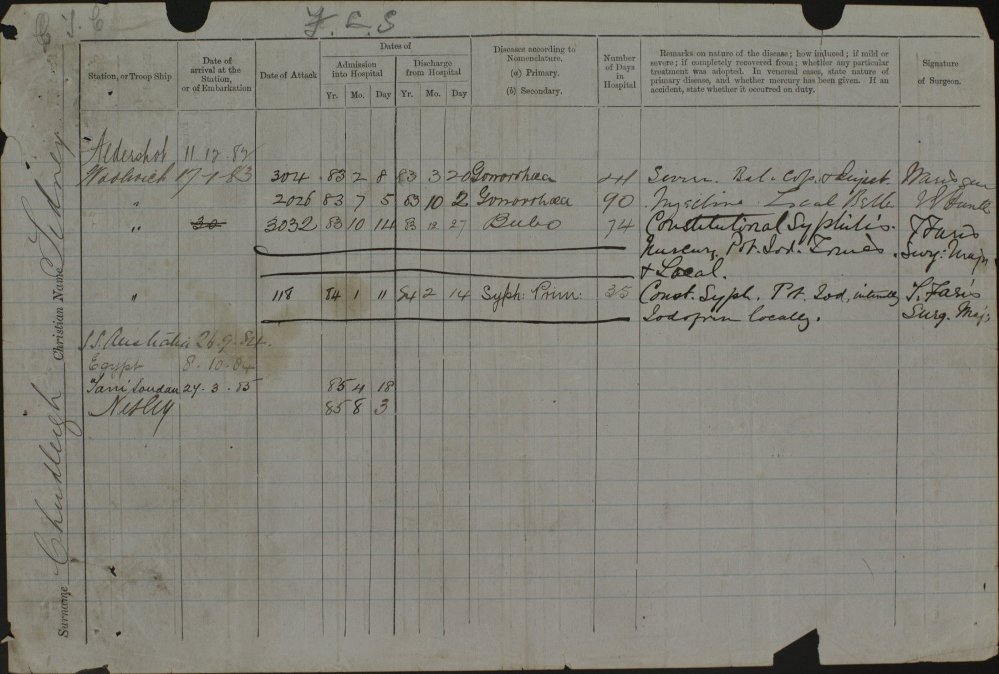 F. L. S
Station, or Troop Ship | Date of arrival at the Station, or of Embarkation | Date of Attack | Dates of | Admission into Hospital | Discharge from Hospital | Yr. | Mo. | Day | Yr. | Mo. | Day | Diseases according to Nomenclature. (a) Primary. (b) Secondary. | Number of Days in Hospital | Remarks on nature of the disease; how induced; if mild or severe; if completely recovered from; whether any particular treatment was adopted. In venereal cases, state nature of primary disease, and whether mercury has been given. If an accident, state whether it occurred on duty. | Signature of Surgeon.
Aldershot 11-12-82
Woolwich 17-1-83 304 83 2 8 83 3 20 Gonorrhoea 41 Severe. Bal. Cop. & Inject.
" 2026 83 7 5 83 10 2 Gonorrhoea 90 Injections Local
" 30 3032 83 10 14 83 12 27 Bubo 74 Constitutional Syphilis. T Faris
Mercury. Pot. Iod. Tonics. Surg: Maj
& Local.
" 118 84 1 11 84 2 14 Syph: Prim: 35 Const. Syph. Pt. Iod, internally T. Faris
Iodoform locally. Surg. Maj:
S.S. Australia 26.9.84.
Egypt 8.10.84
Soudan 27.3.85 85 4 18
Netley 85 8 3
Surname Chudleigh Christian Name Sidney